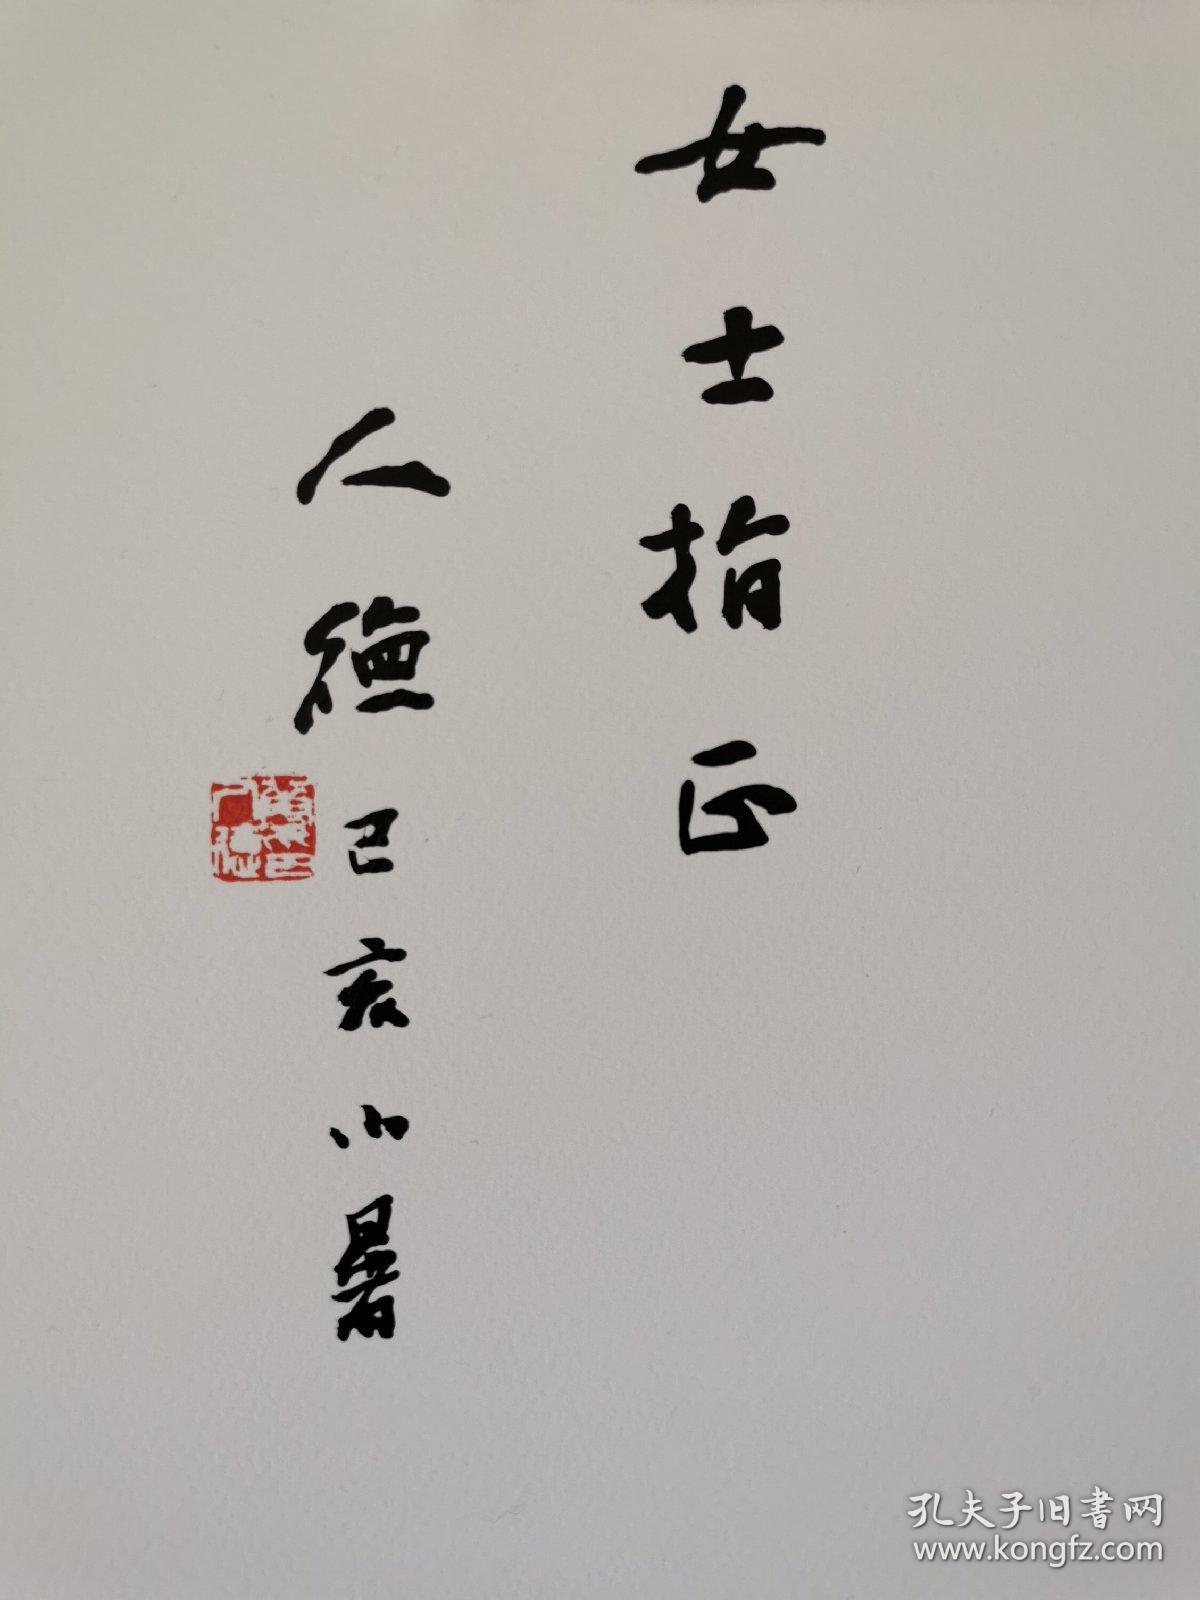 女士指正
人德己亥小暑
孔夫子旧书网
www.kongfz.com